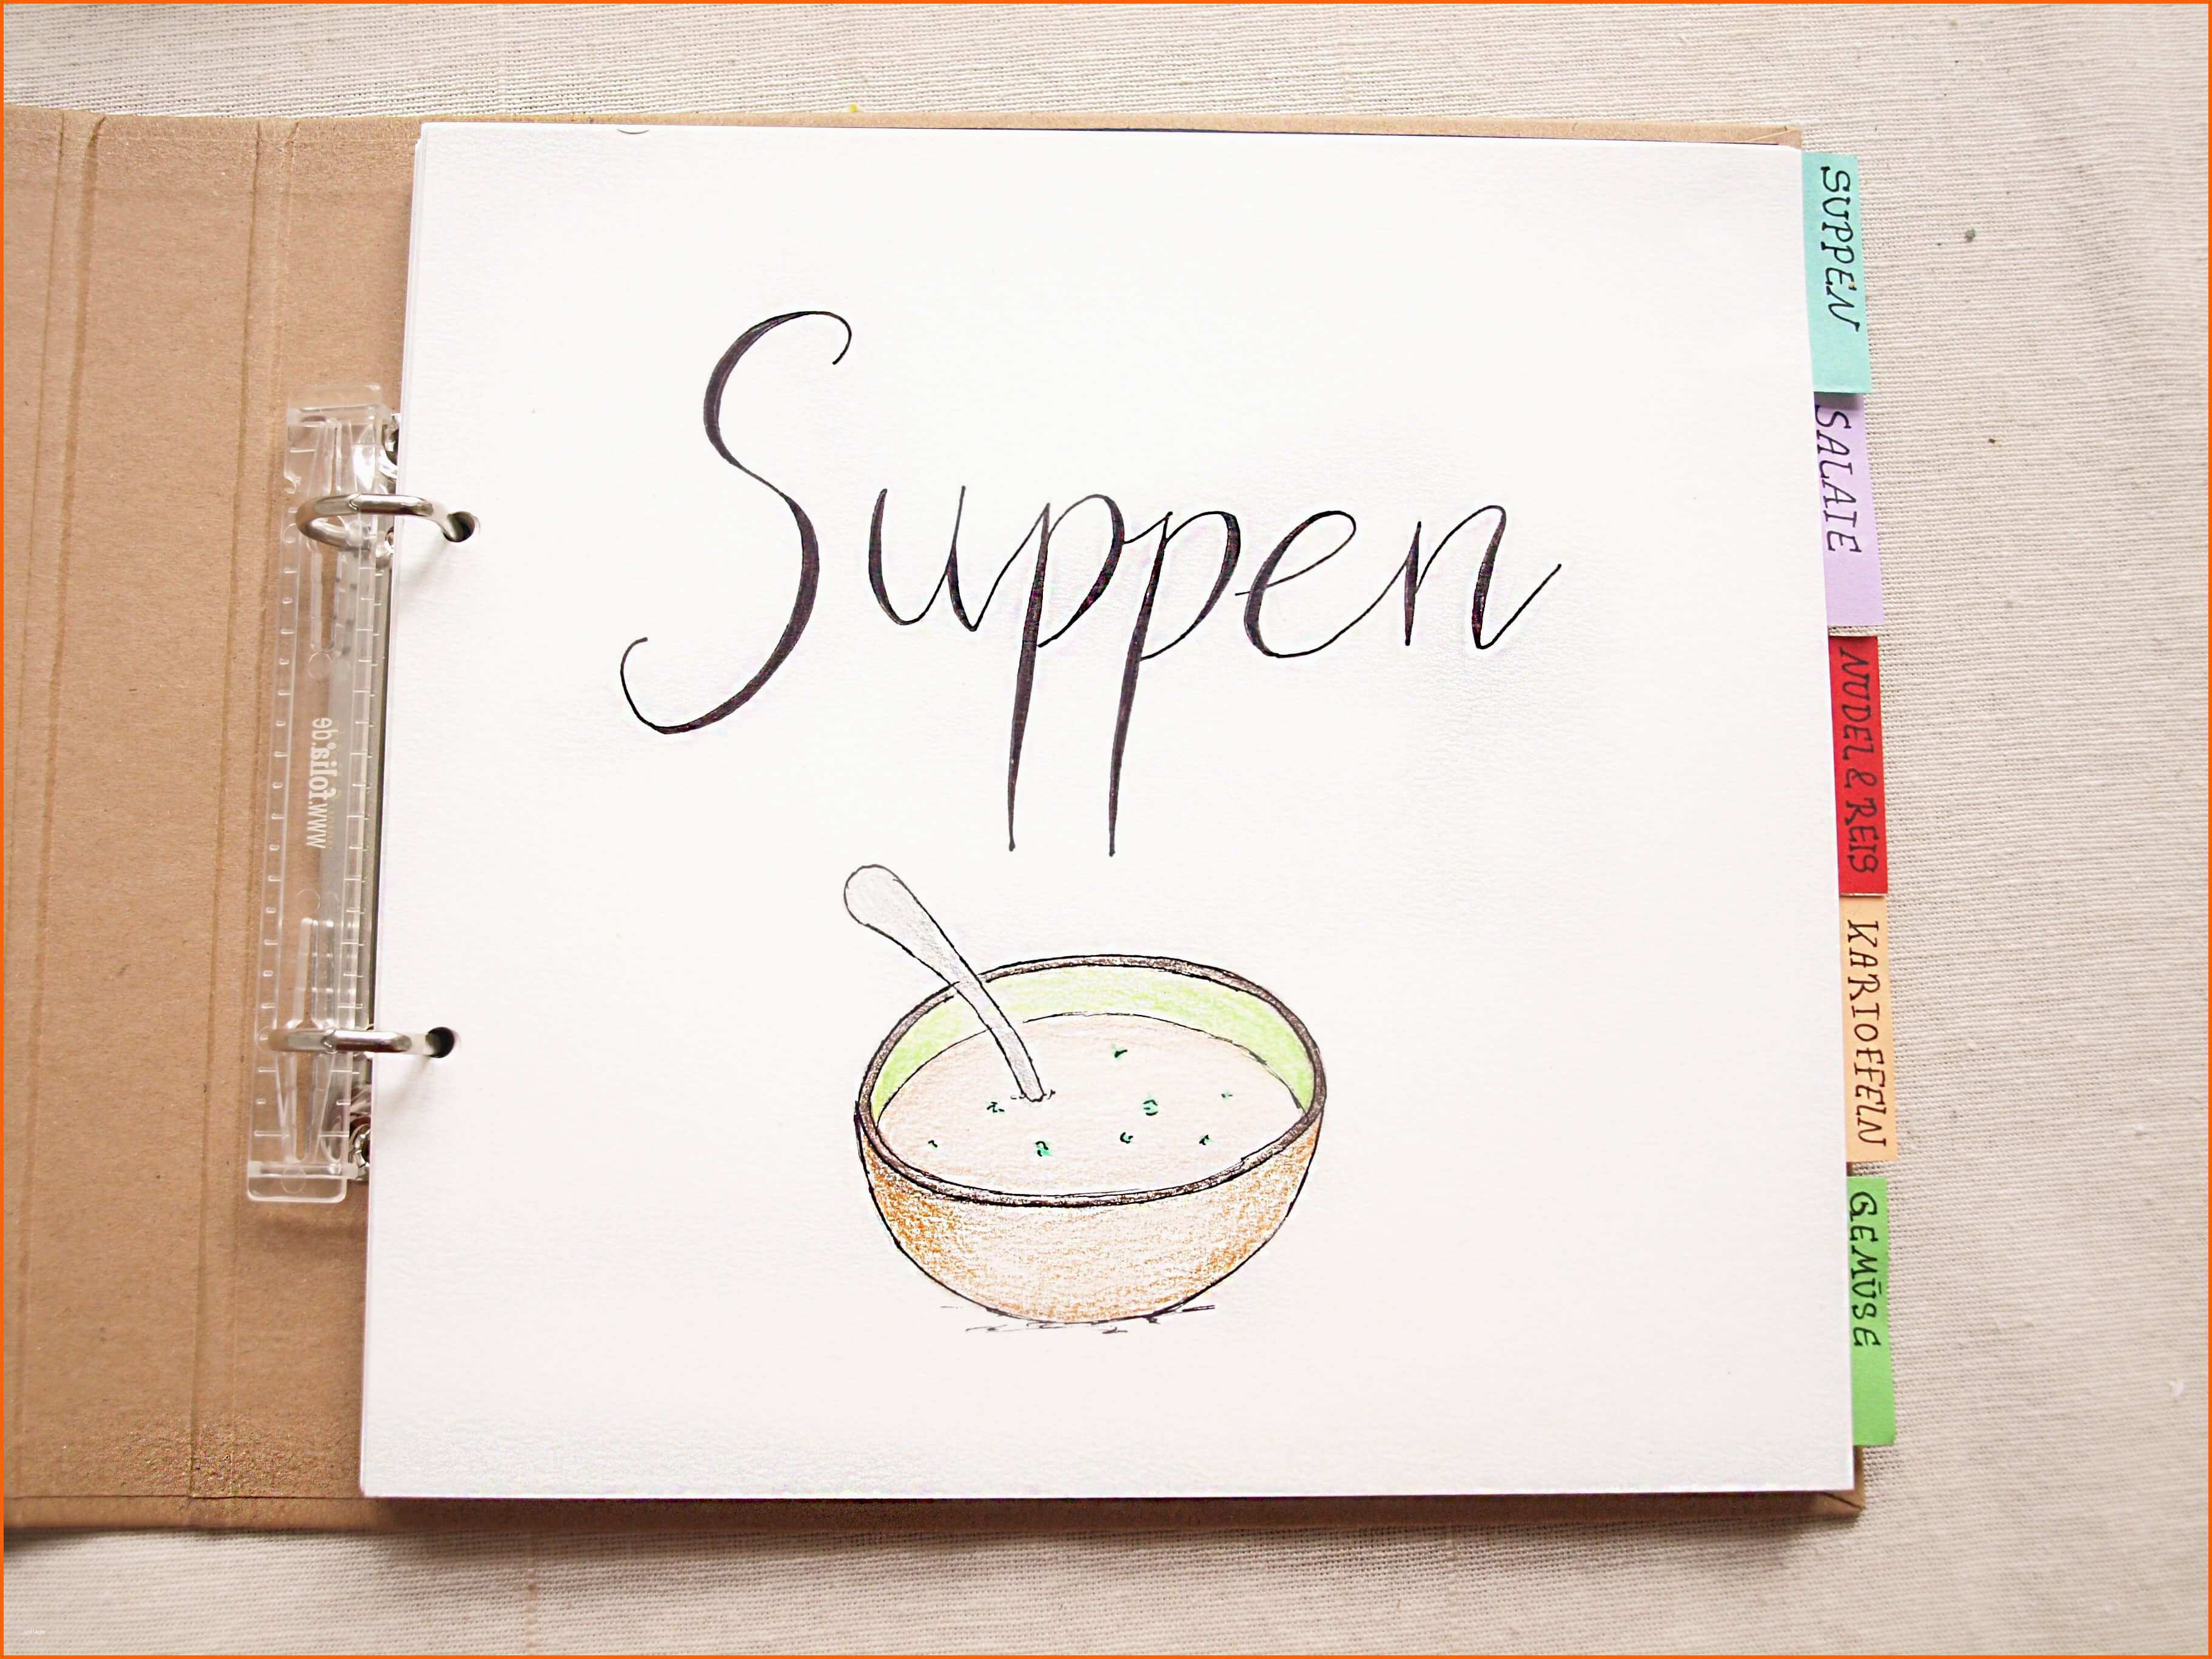 Suppen
SUPPEN
SALATE
NUDEL & REIS
KARTOFFELN
GEMÜSE
www.folia.de